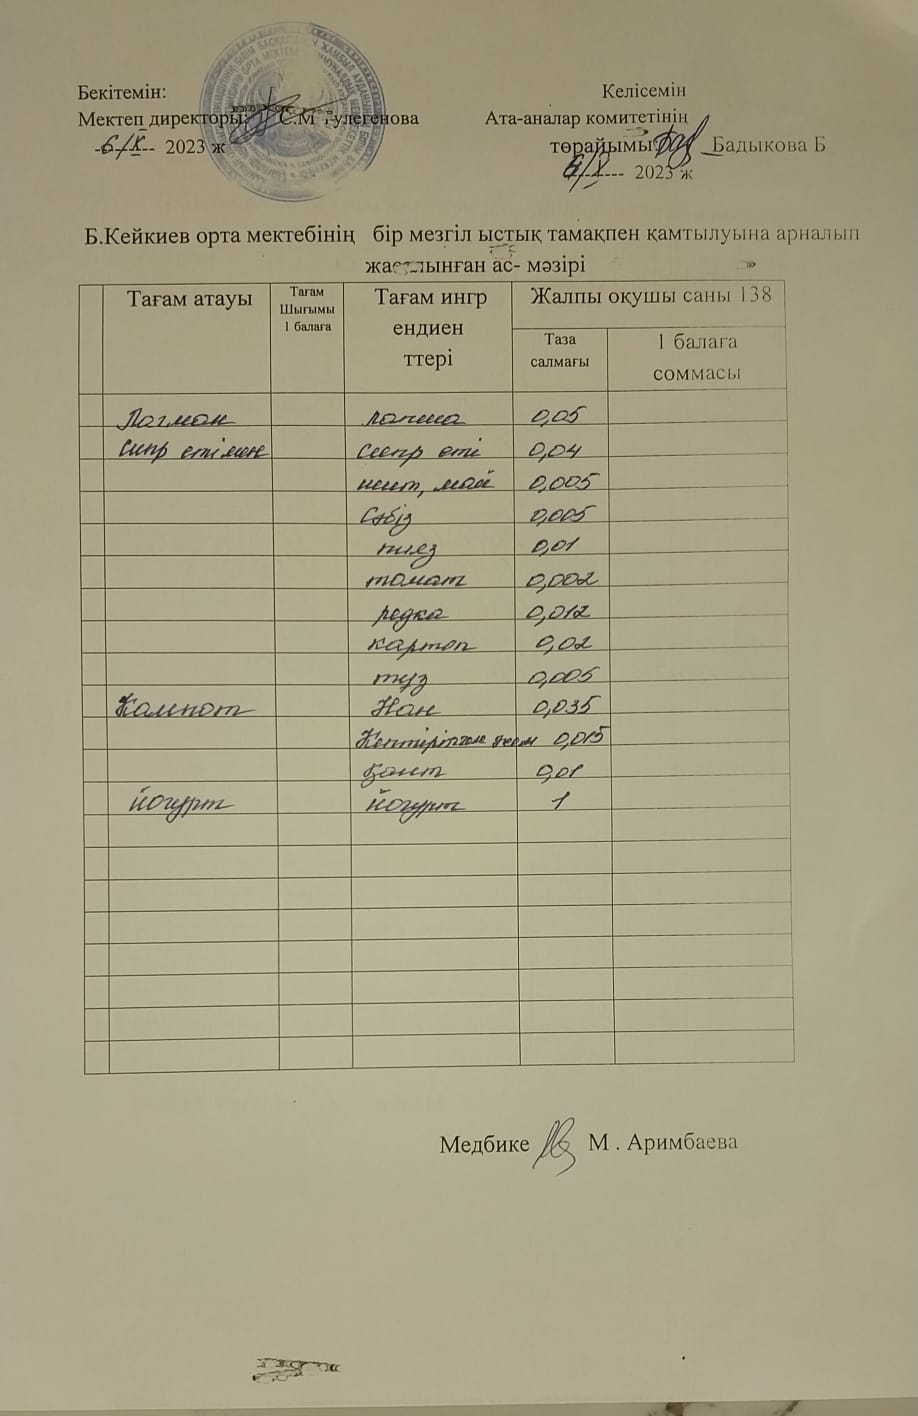 Бекітемін:
Мектеп директоры: С.М Тулегенова
6/X 2023 ж
Келісемін
Ата-аналар комитетінің
төрайымы Бадыкова Б
6/X 2023 ж
Б.Кейкиев орта мектебінің бір мезгіл ыстық тамақпен қамтылуына арналып
ас- мәзірі
Тағам атауы Тағам Шығымы 1 балаға Тағам ингр ендиен ттері Жалпы оқушы саны 138
Таза салмағы 1 балаға соммасы
Лагман лапша 0,05
сиыр етімен сиыр еті 0,04
май 0,005
Сәбіз 0,005
пияз 0,01
томат 0,002
редка 0,012
картоп 0,02
тұз 0,005
Компот Нан 0,035
Кептірілген 0,015
қант 0,01
йогурт йогурт 1
Медбике М . Аримбаева